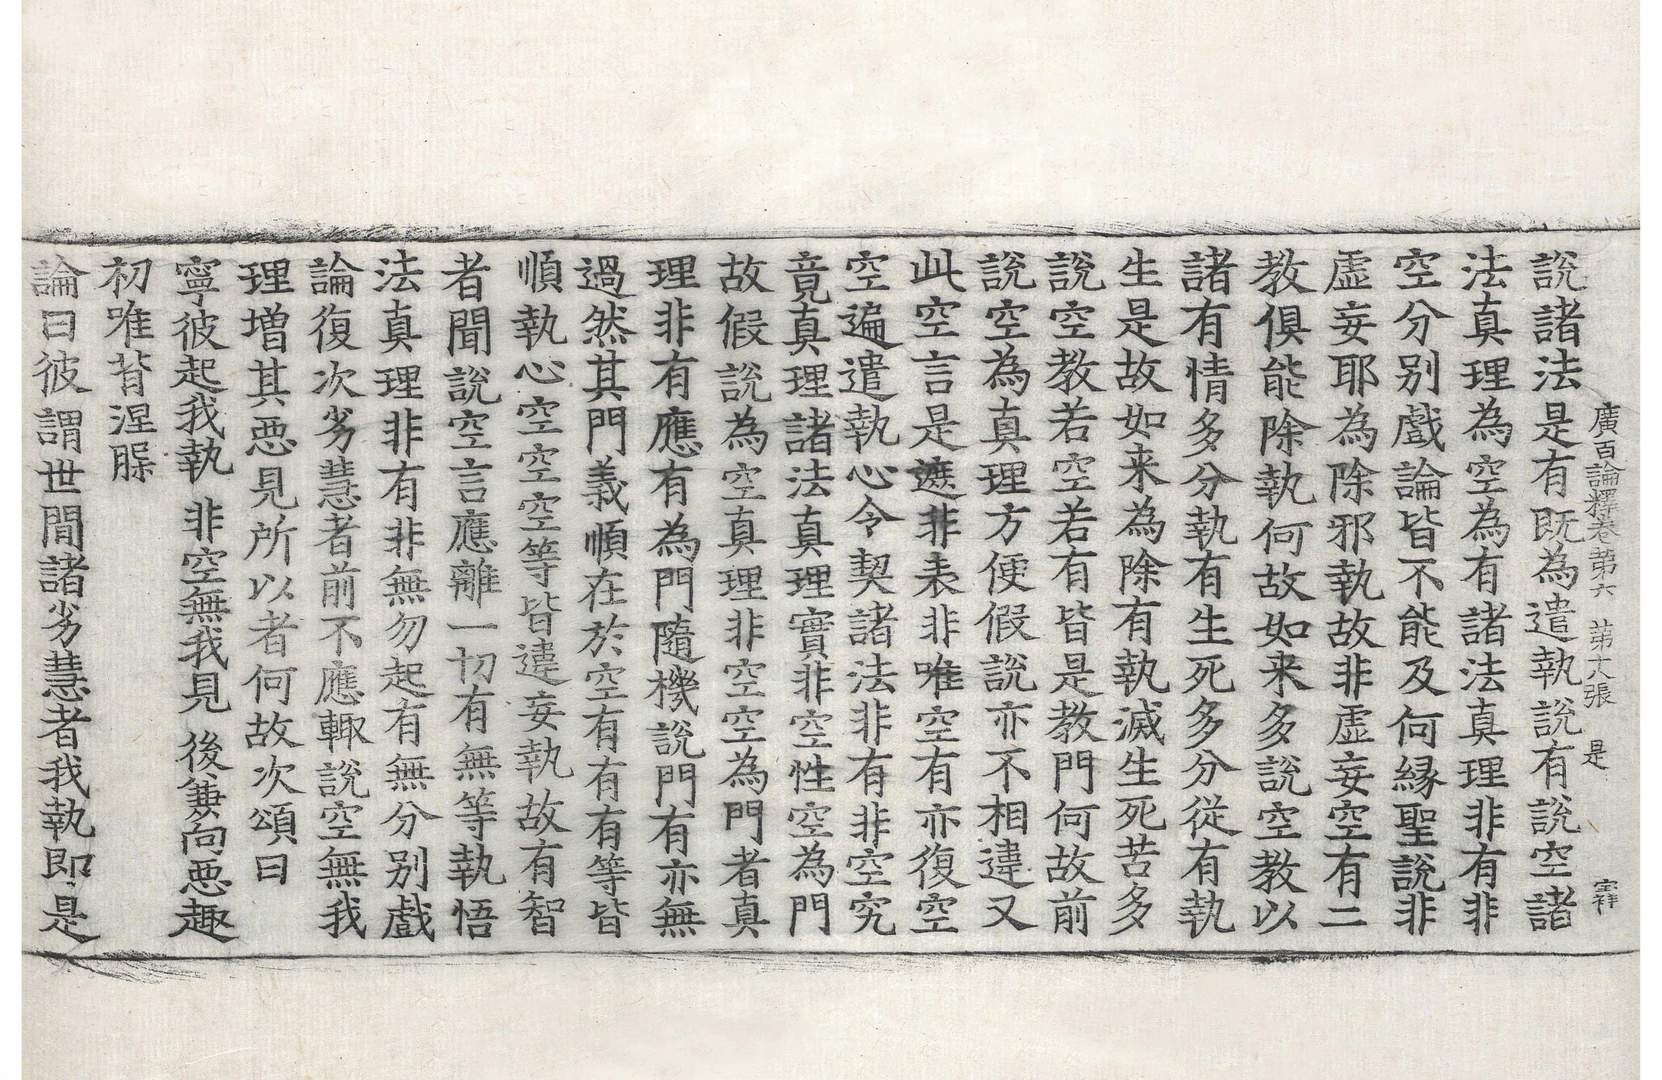 廣百論釋卷第六　第十八張　是
說諸法是有既為遣執說有說空諸
法真理為空為有諸法真理非有非
空分別戲論皆不能及何緣聖說非
虛妄耶為除邪執故非虛妄空有二
教俱能除執何故如来多說空教以
諸有情多分執有生死多分從有執
生是故如来為除有執滅生死苦多
說空教若空若有皆是教門何故前
說空為真理方便假說亦不相違又
此空言是遮非表非唯空有亦復空
空遍遣執心令契諸法非有非空究
竟真理諸法真理實非空性空為門
故假說為空真理非空空為門者真
理非有應有為門隨機說門有亦無
過然其門義順在於空有有有等皆
順執心空空空等皆違妄執故有智
者聞說空言應離一切有無等執悟
法真理非有非無勿起有無分別戲
論復次劣慧者前不應輙說空無我
理增其惡見所以者何故次頌曰
寧彼起我執　非空無我見　後兼向惡趣
初唯背涅槃
論曰彼謂世間諸劣慧者我執即是